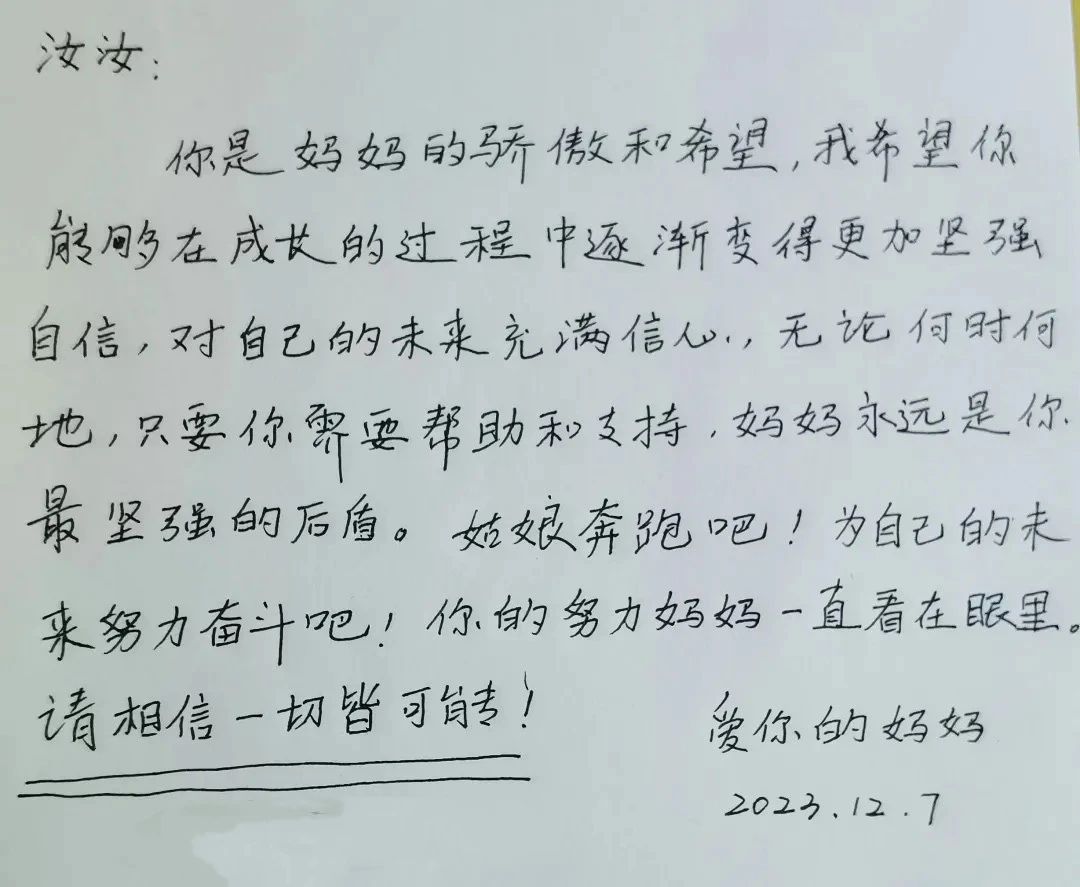 汝汝：
你是妈妈的骄傲和希望，我希望你
能够在成长的过程中逐渐变得更加坚强
自信，对自己的未来充满信心，无论何时何
地，只要你需要帮助和支持，妈妈永远是你
最坚强的后盾。姑娘奔跑吧！为自己的未
来努力奋斗吧！你的努力妈妈一直看在眼里。
请相信一切皆可能！
爱你的妈妈
2023.12.7